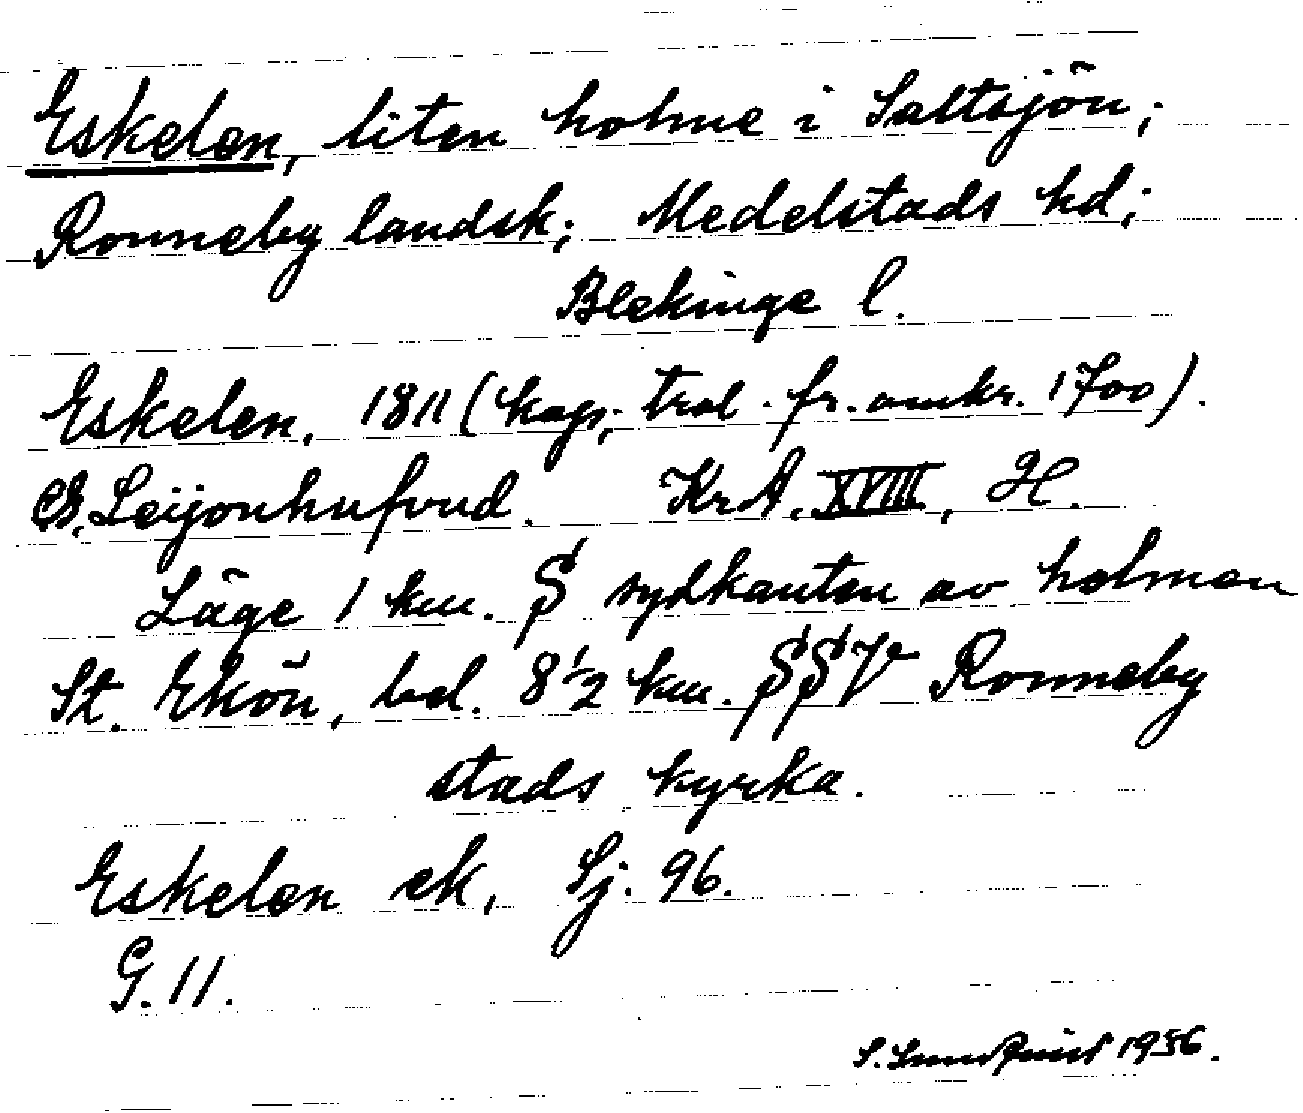 Eskelen, liten holme i Saltsjön;
Ronneby landsk; Medelstads hd;
Blekinge l.
Eskelen, 1811 (kop; trol. fr. omkr. 1700).
B. Leijonhufvud. KrA. XVIII, H.
Läge 1 km. S sydkanten av holmen
St. Ekön, bel. 8 1/2 km. SSV Ronneby
stads kyrka.
Eskelen ek, Sj. 96.
G. 11.
S. Lundquist 1956.